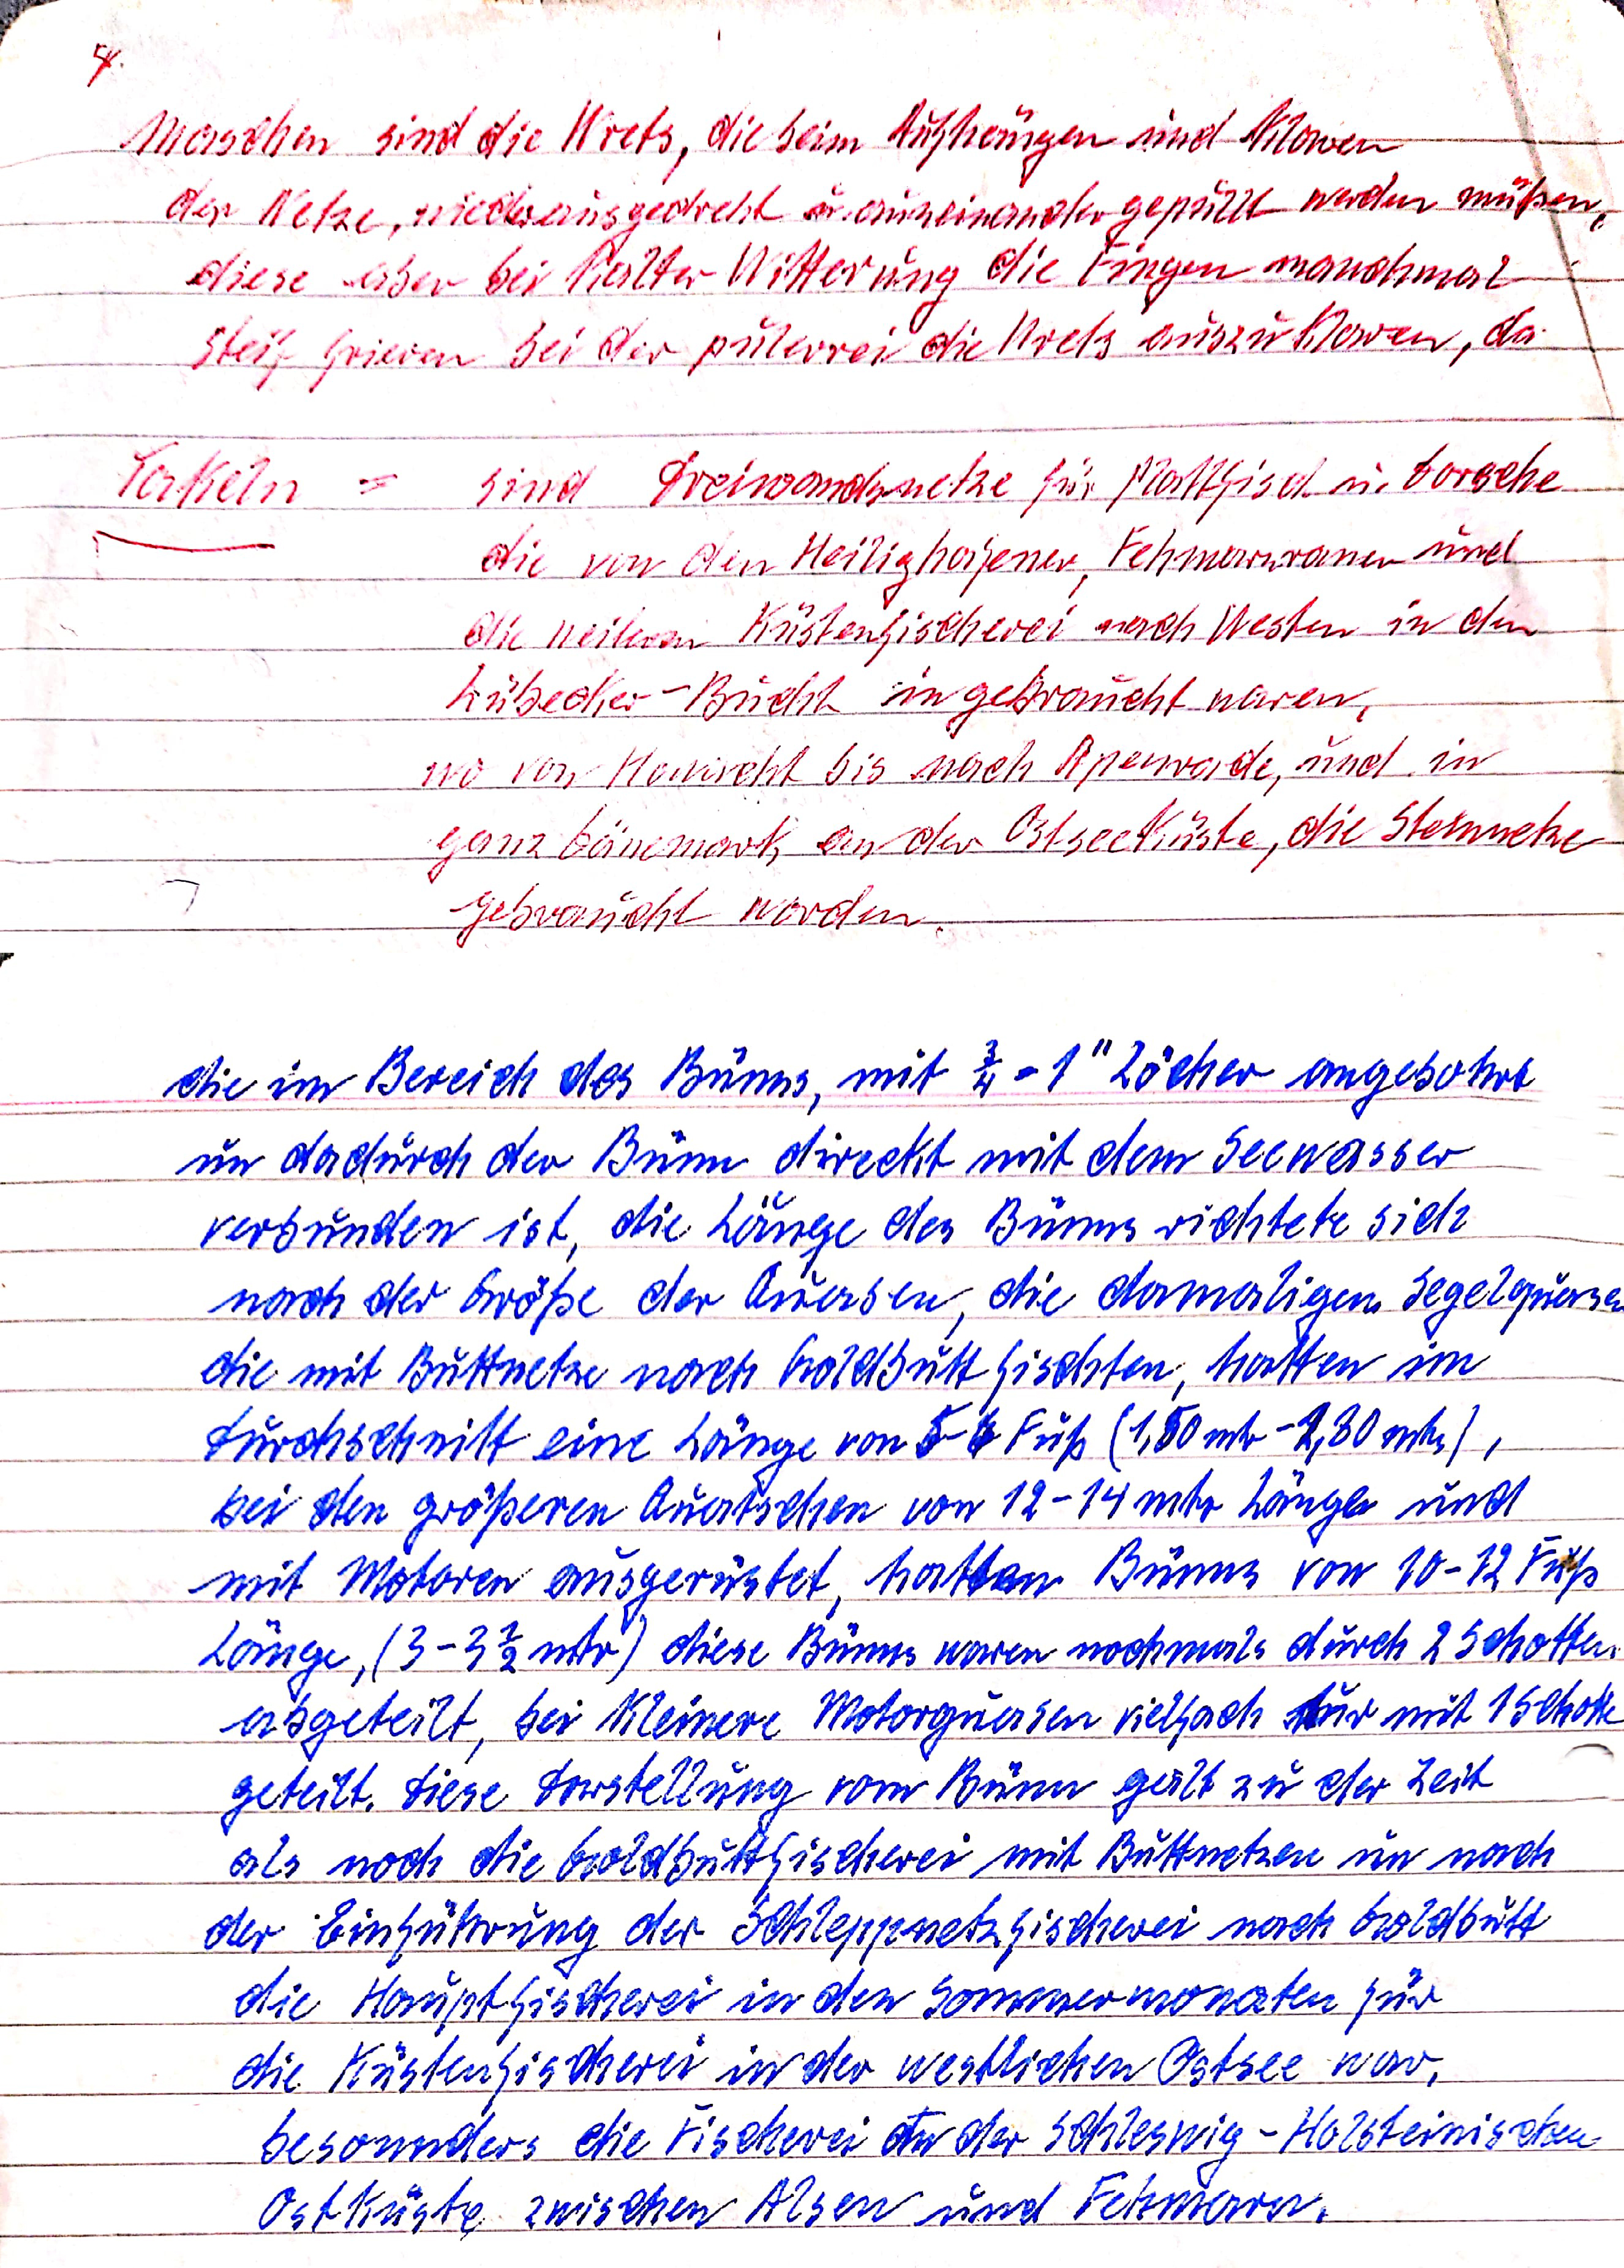 4.
Maschen sind die Wrets, die beim Aufhängen und Klaren
der Netze, wieder ausgedreht u. auseinander gepüllt werden müßen,
diese aber bei Kalter Witterung die Fingen manchmal
steif frieren bei der pülerrei die Wrets auszuklaren, da
Takeln = sind Dreiwandnetze für Plattfisch u. Dorsche
die von den Heilighafener, Fehmarnraner und
die weiteren Küstenfischerei nach Westen in den
Lübecker-Bucht in gebraucht waren,
wo von Howacht bis nach Apenrade, und in
ganz Dänemark an der Ostseeküste, die Steinnetze
gebraucht worden.
die im Bereich des Bünns, mit ¾-1" Löcher angebohrt
un dadurch der Bünn direckt mit dem Seewasser
verbunden ist, die Länge des Bünns richtete sich
nach der Größe der Quasen, die damaligen Segelquasen
die mit Buttnetze nach Goldbutt fischten, hatten im
Durchschnitt eine Länge von 5-6 Fuß (1,50 mtr - 1,80 mtr),
bei den größeren Quatschen von 12-14 mtr Länge und
mit Motoren ausgerüstet, hatten Bünns von 10-12 Fuß
Länge, (3-3½ mtr) diese Bünns waren nochmals durch 2 Schotten
abgeteilt, bei Kleinere Motorquasen vielfach nur mit 1 Schotte
geteilt. Diese Darstellung vom Bünn galt zu der Zeit
als noch die Goldbuttfischerei mit Buttnetzen un nach
der Einführung der Schleppnetzfischerei nach Goldbutt
die Hauptfischerei in den Sommermonaten für
die Küstenfischerei in der westlichen Ostsee war,
besonnders die Fischerei an der Schleswig-Holsteinischen
Ostküste zwischen Alsen und Fehmarn.